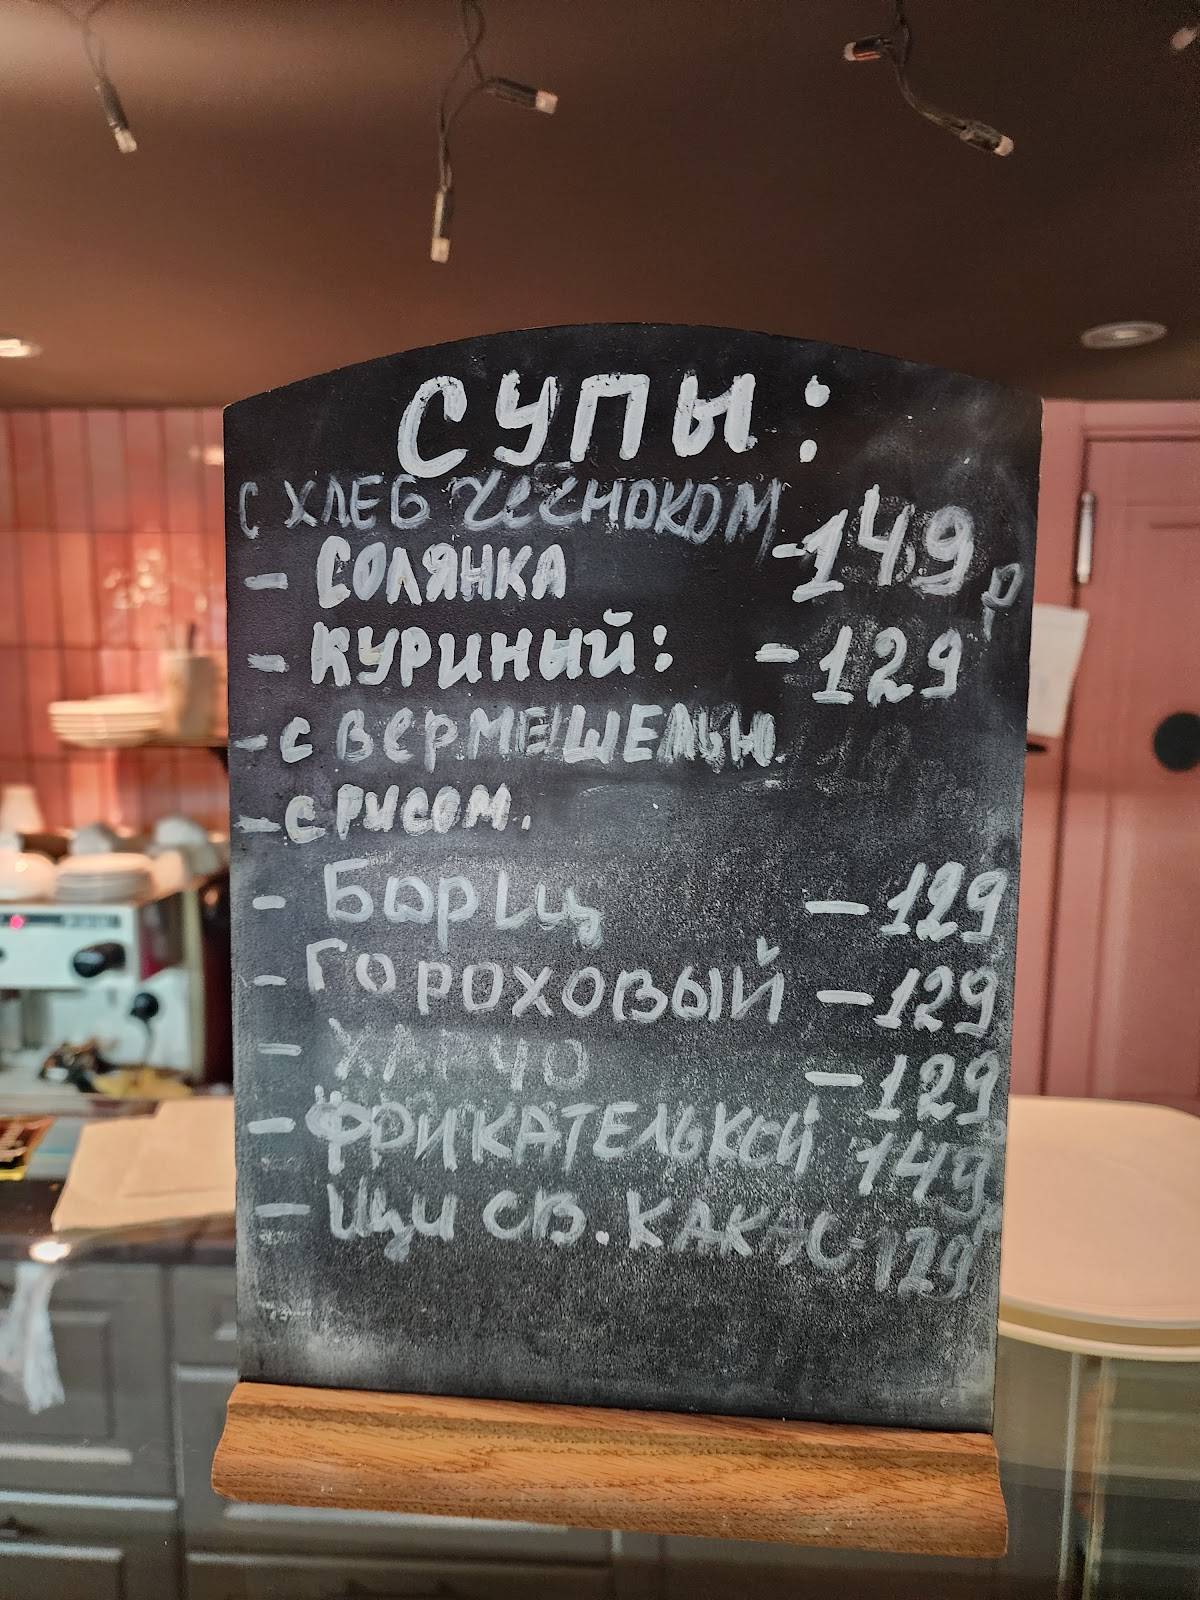 СУПЫ:
С ХЛЕБ ЧЕСНОКОМ
- СОЛЯНКА -149 р
- КУРИНЫЙ: -129
- С ВЕРМЕШЕЛЬЮ.
- С РИСОМ.
- БОРЩ -129
- ГОРОХОВЫЙ -129
- ХАРЧО -129
- ФРИКАТЕЛЬКОЙ 149
- ЩИ СВ. КАКАС-129